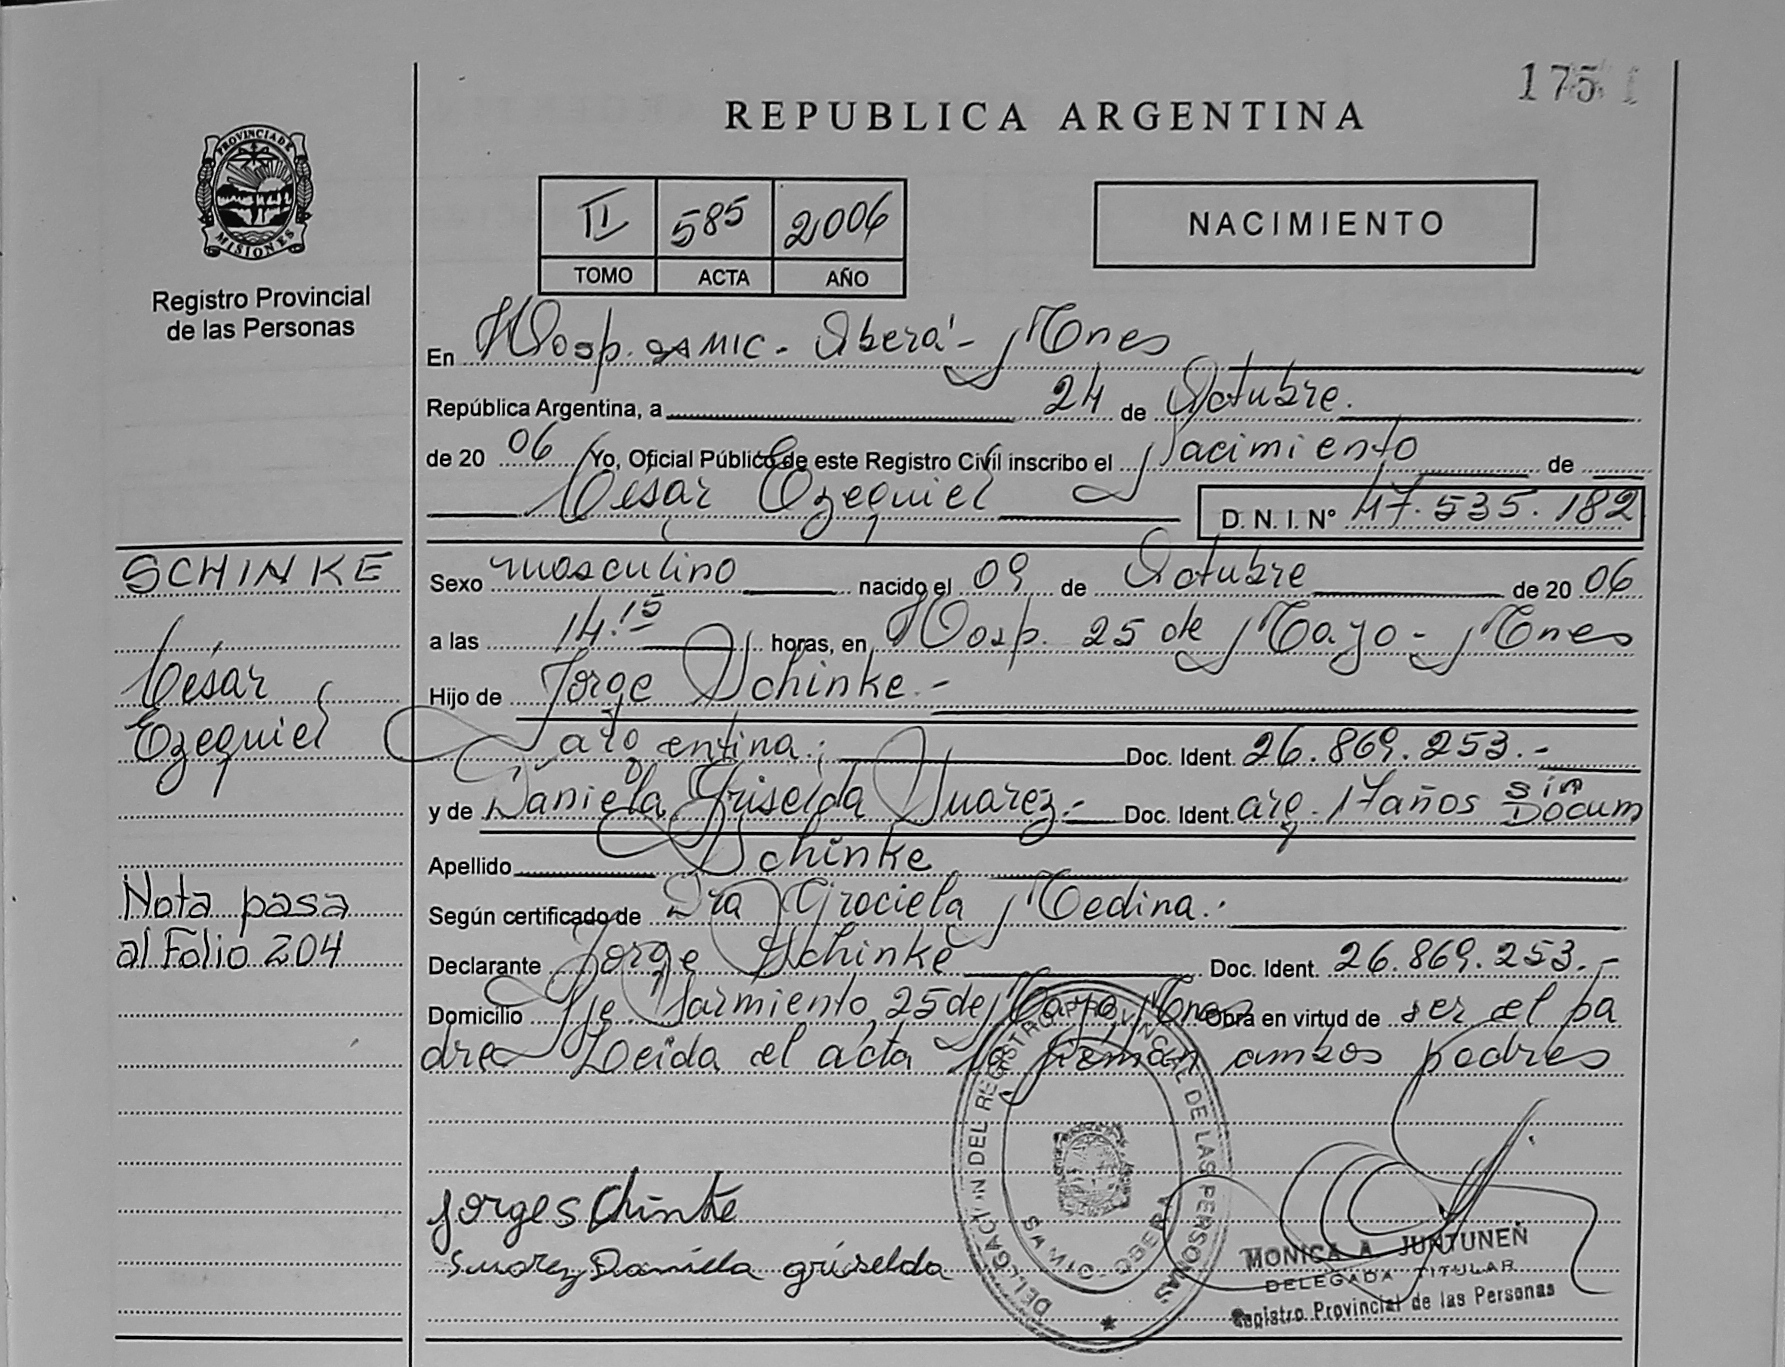 175
REPUBLICA ARGENTINA
PROVINCIA DE
MISIONES
Registro Provincial
de las Personas
II 585 2006
TOMO ACTA AÑO
NACIMIENTO
En Hosp. SAMIC - Oberá - Mnes
República Argentina, a 24 de Octubre.
de 20 06 Yo, Oficial Público de este Registro Civil inscribo el Nacimiento de
César Ezequiel D. N. I. N° 47.535.182
SCHINKE
César
Ezequiel
Sexo masculino nacido el 09 de Octubre de 20 06
a las 14.15 horas, en Hosp. 25 de Mayo - Mnes
Hijo de Jorge Schinke.-
argentina.; Doc. Ident. 26.869.253.-
y de Daniela Griselda Suarez.- Doc. Ident. arg. 17 años sin Docum
Apellido Schinke
Según certificado de Dra Graciela Medina.
Nota pasa
al Folio 204
Declarante Jorge Schinke Doc. Ident. 26.869.253.-
Domicilio Sarmiento, 25 de Mayo, Mnes Obra en virtud de ser el pa
dre Leida el acta la firman ambos padres
Jorge Schinke
Suarez Daniela griselda
DELEGACION DEL REGISTRO PROVINCIAL DE LAS PERSONAS
SAMIC - OBERA
MONICA A. JUNTUNEN
DELEGADA TITULAR
Registro Provincial de las Personas